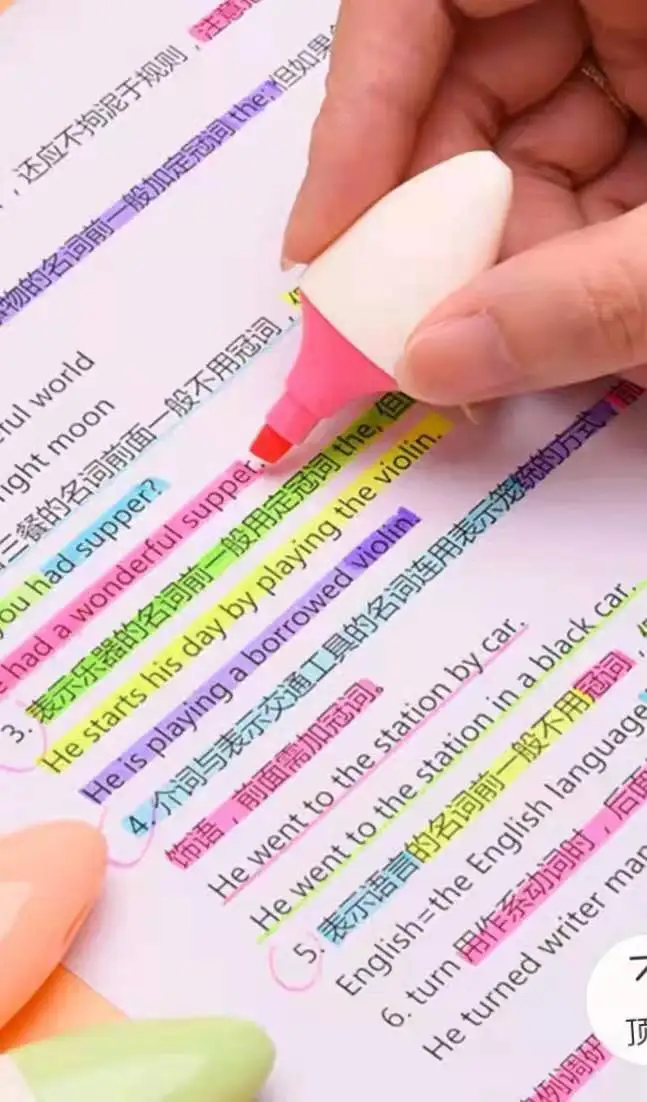 注意
，还应不拘泥于规则，
物的名词前一般加定冠词 the;但如果
ful world
ight moon
三餐的名词前面一般不用冠词，
you had supper?
had a wonderful supper.
3. 表示乐器的名词前一般用定冠词 the, 但
He starts his day by playing the violin.
He is playing a borrowed violin.
4. 介词与表示交通工具的名词连用表示笼统的方式
饰语，前面需加冠词。
He went to the station by car.
He went to the station in a black car.
5. 表示语言的名词前一般不用冠词，
English=the English language
6. turn 用作系动词时，后面
He turned writer
例调研